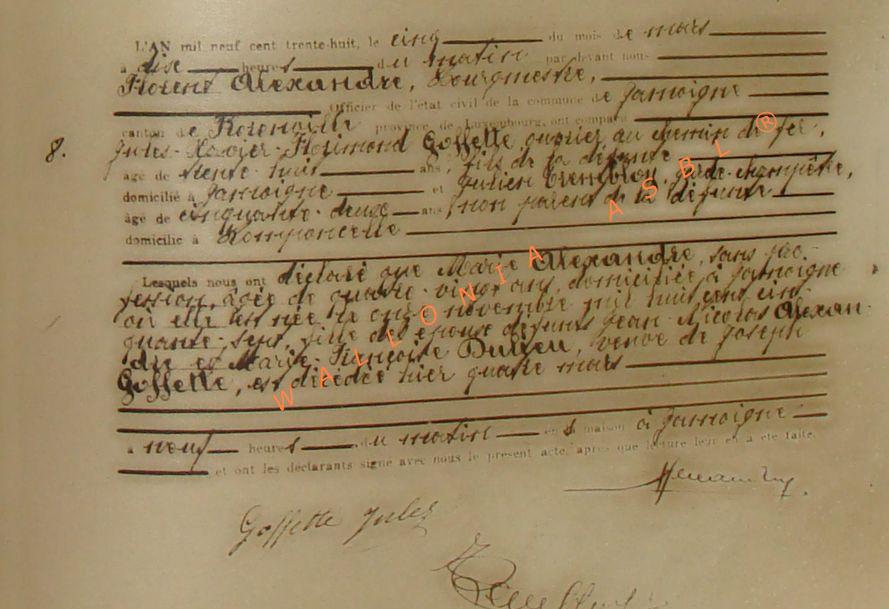 L'AN mil neuf cent trente-huit, le cinq du mois de mars
à dix heures du matin par devant nous
Florent Alexandre, Bourgmestre,
Officier de l'état civil de la commune de Jamoigne
canton de Florenville province de Luxembourg, ont comparu
8. Jules-Xavier-Florimond Goffette, ouvrier au chemin de fer,
âgé de trente-huit ans, fils de la défunte
domicilié à Jamoigne et Julien Tremblou, garde-champêtre,
âgé de cinquante-deux ans, non parent de la défunte
domicilié à Romponcelle
Lesquels nous ont déclaré que Marie Alexandre, sans pro-
fession, âgée de quatre-vingt ans, domiciliée à Jamoigne
où elle est née le onze novembre mil huit cent cin-
quante-sept, fille des époux défunts Jean-Nicolas Alexan-
dre et Marie-Françoise Dulieu, veuve de Joseph
Goffette, est décédée hier quatre mars
à neuf heures du matin en sa maison à Jamoigne
et ont les déclarants signé avec nous le présent acte, après que lecture leur en a été faite.
Goffette Jules
WALLONIA ASBL ®